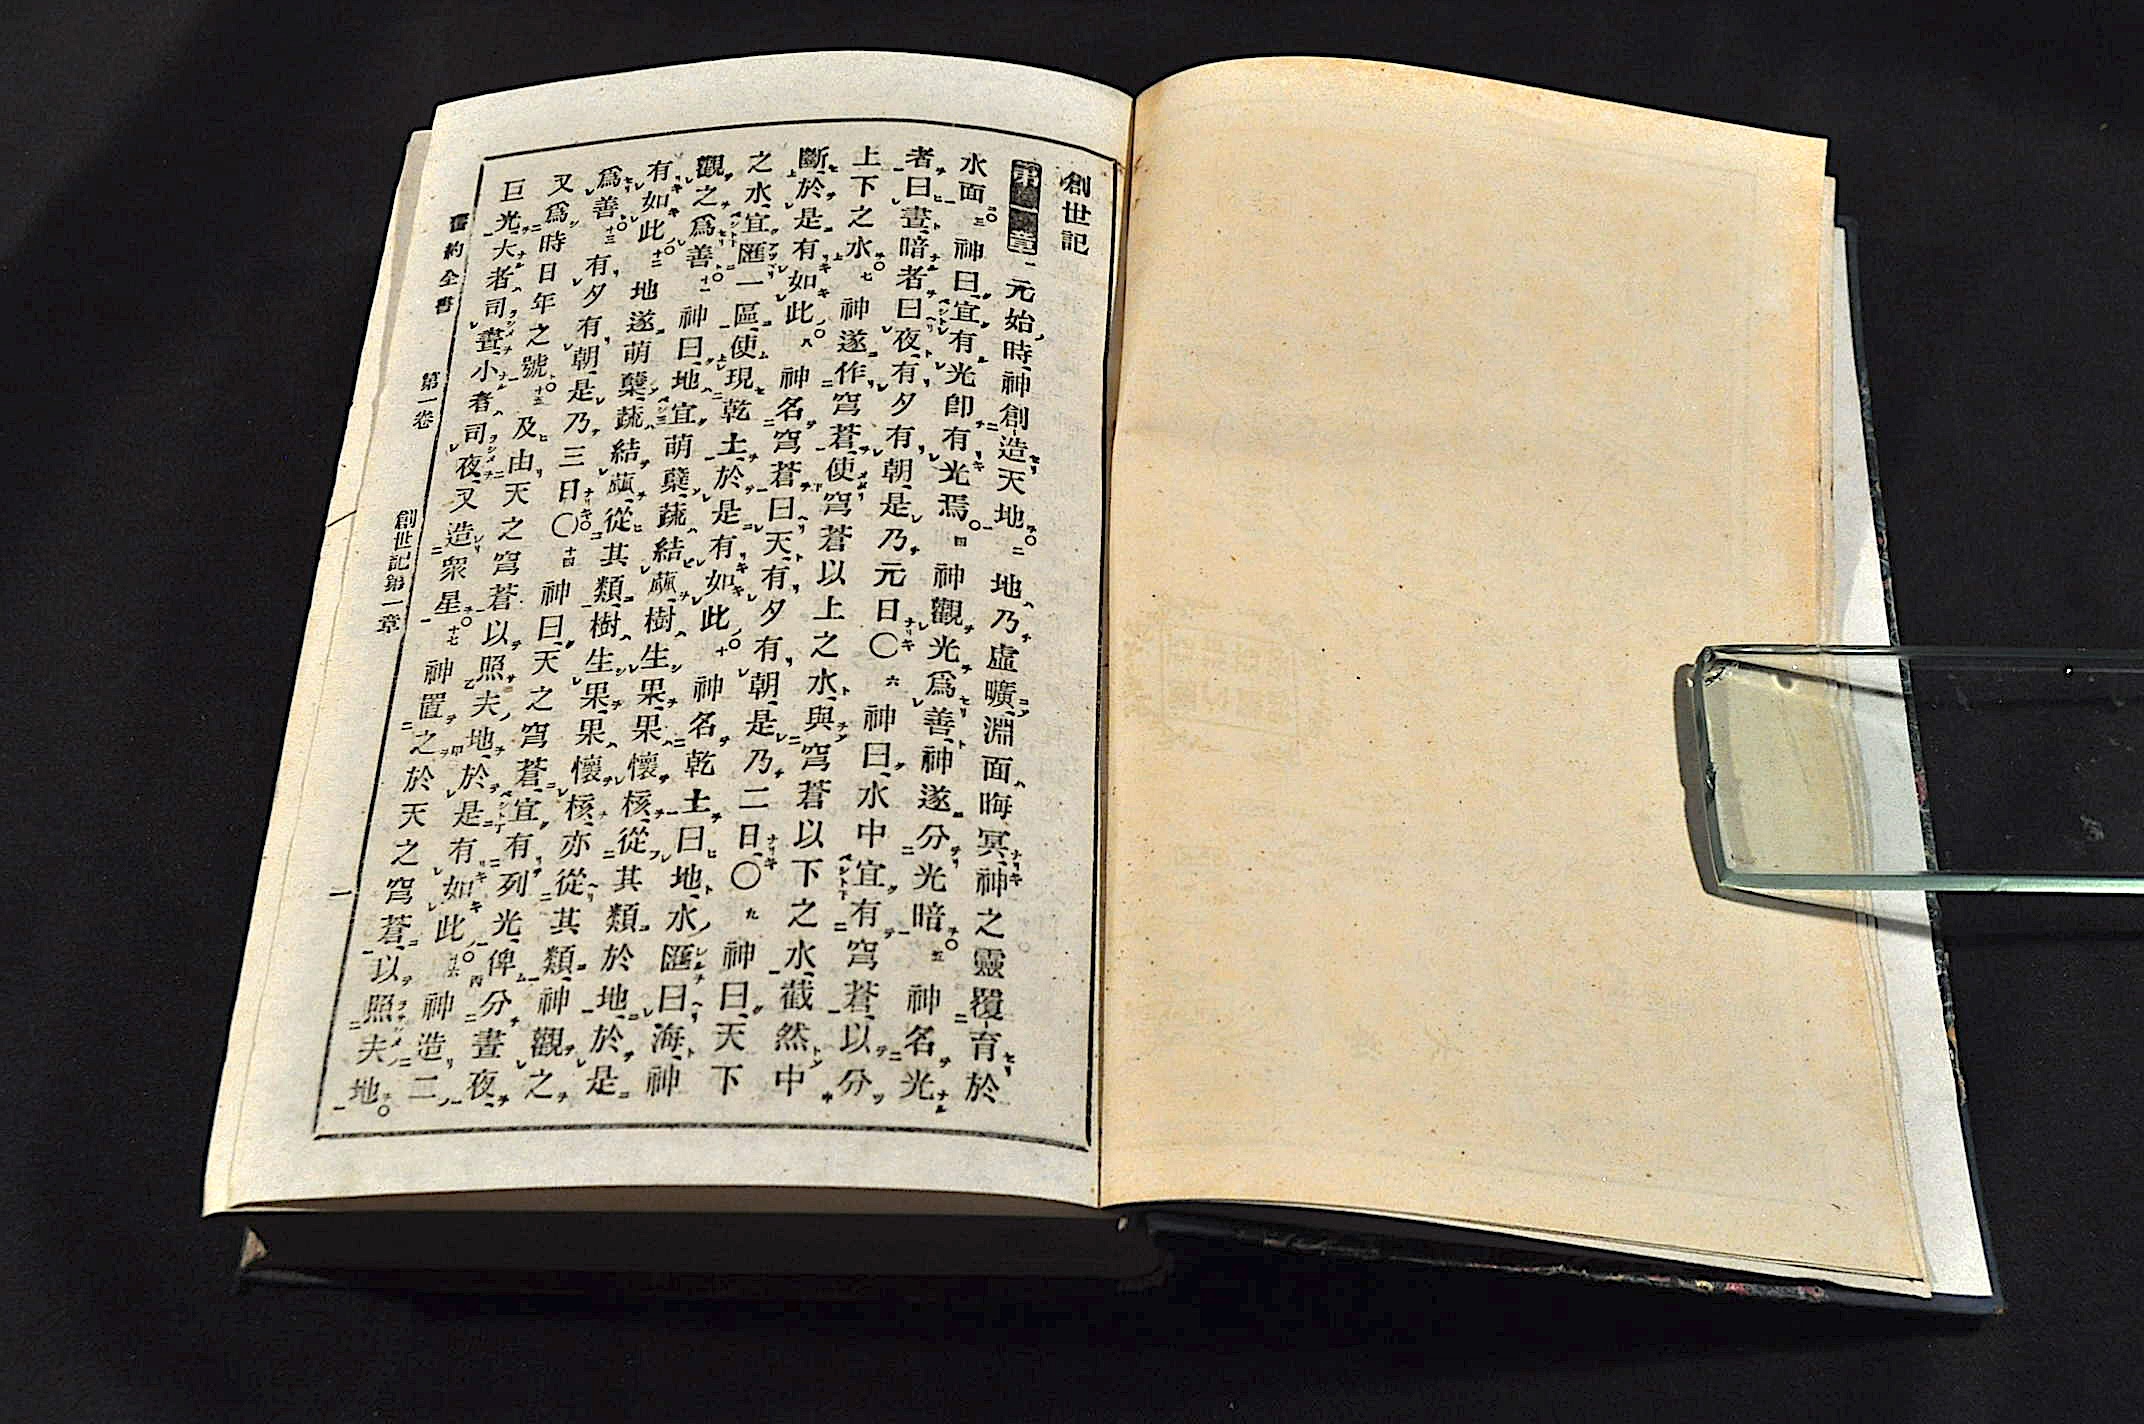 創世記
第一章 一元始時、神創造天地。二地乃虛曠、淵面晦冥、神之靈覆育於
水面。三神曰、宜有光、即有光焉。四神觀光爲善、神遂分光暗。五神名光
者曰晝、暗者曰夜、有夕有朝、是乃元日〇六神曰、水中宜有穹蒼、以分
上下之水。七神遂作穹蒼、使穹蒼以上之水、與穹蒼以下之水、截然中
斷、於是有如此。八神名穹蒼曰天、有夕有朝、是乃二日、〇九神曰、天下
之水、宜匯一區、使現乾土、於是有如此。十神名乾土曰地、水匯曰海、神
觀之爲善。十一神曰、地宜萌蘖、蔬結蓏、樹生果、果懷核、從其類於地、於是
有如此。十二地遂萌蘖、蔬結蓏、從其類、樹生果、果懷核、亦從其類、神觀之
爲善。十三有夕有朝、是乃三日。〇十四神曰、天之穹蒼、宜有列光、俾分晝夜、
又爲時日年之號。十五及由天之穹蒼、以照夫地、於是有如此。十六神造二
巨光、大者司晝、小者司夜、又造衆星。十七神置之於天之穹蒼、以照夫地。
舊約全書 第一卷 創世記第一章 一